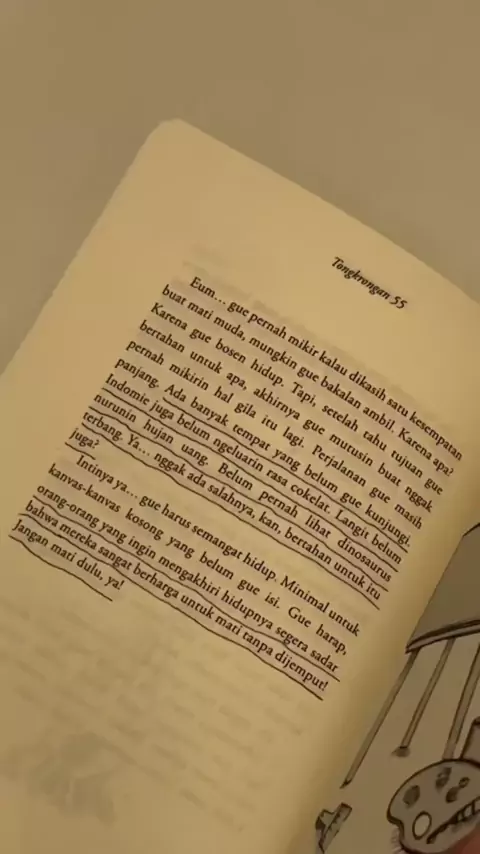 Tongkrongan 55
Eum... gue pernah mikir kalau dikasih satu kesempatan
buat mati muda, mungkin gue bakalan ambil. Karena apa?
Karena gue bosen hidup. Tapi, setelah tahu tujuan gue
bertahan untuk apa, akhirnya gue mutusin buat nggak
pernah mikirin hal gila itu lagi. Perjalanan gue masih
panjang. Ada banyak tempat yang belum gue kunjungi.
Indomie juga belum ngeluarin rasa cokelat. Langit belum
nurunin hujan uang. Belum pernah lihat dinosaurus
terbang. Ya... nggak ada salahnya, kan, bertahan untuk itu
juga?
Intinya ya... gue harus semangat hidup. Minimal untuk
kanvas-kanvas kosong yang belum gue isi. Gue harap,
orang-orang yang ingin mengakhiri hidupnya segera sadar
bahwa mereka sangat berharga untuk mati tanpa dijemput!
Jangan mati dulu, ya!